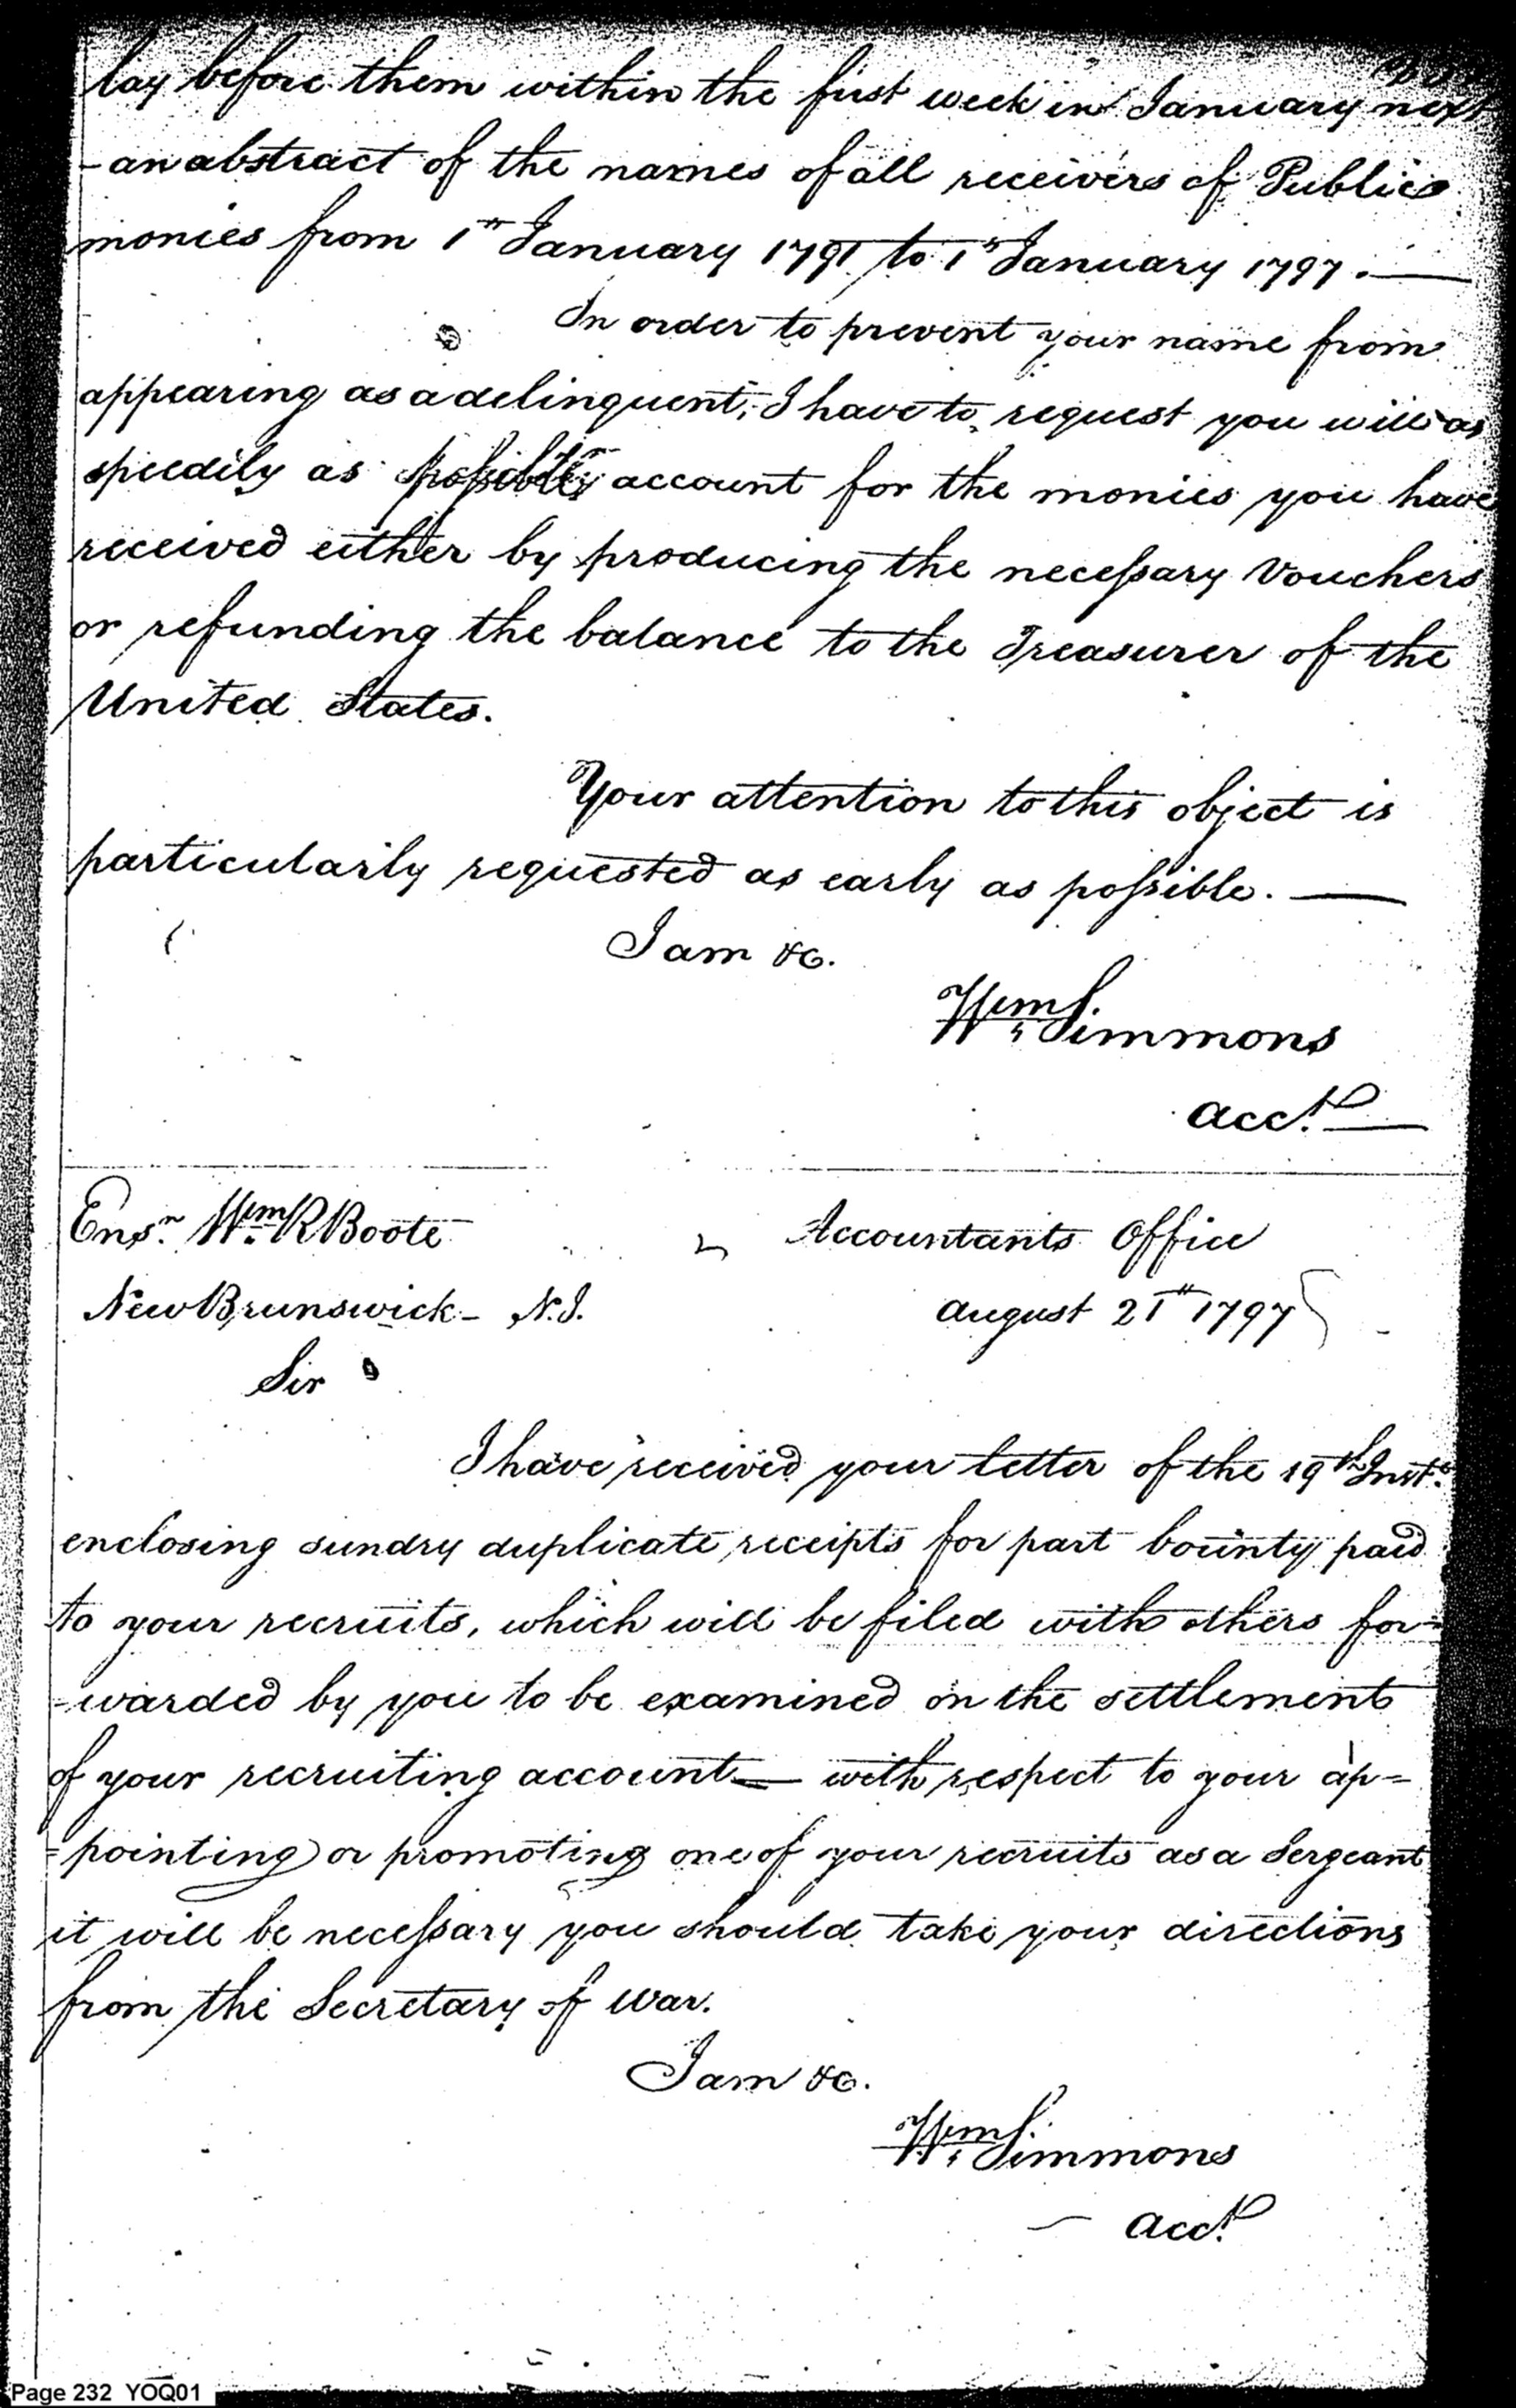 lay before them within the first week in January next
- an abstract of the names of all receivers of Public
monies from 1st January 1791 to 1st January 1797.
In order to prevent your name from
appearing as a delinquent, I have to request you will as
speedily as possible account for the monies you have
received either by producing the necessary Vouchers
or refunding the balance to the Treasurer of the
United States.
Your attention to this object is
particularly requested as early as possible.
I am &c.
Wm Simmons
Acct.
Ensn. Wm R Boote
Accountants Office
New Brunswick - N.J.
August 21st 1797
Sir
I have received your letter of the 19th Inst.
enclosing sundry duplicate receipts for part bounty paid
to your recruits, which will be filed with others for=
=warded by you to be examined on the settlement
of your recruiting account — with respect to your ap=
=pointing or promoting one of your recruits as a Sergeant
it will be necessary you should take your directions
from the Secretary of War.
I am &c.
Wm Simmons
Acct.
Page 232 YOQ01